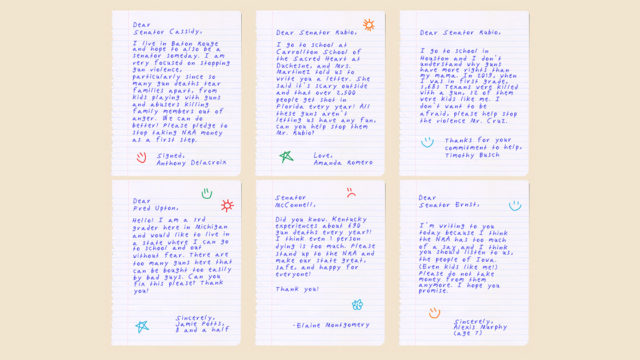 Dear
Senator Cassidy,
I live in Baton Rouge
and hope to also be a
senator someday. I am
very focused on stopping
gun violence,
particularly since so
many gun deaths tear
families apart, from
kids playing with guns
and abusers killing
family members out of
anger. We can do
better! Please pledge to
stop taking NRA money
as a first step.
Signed,
Anthony Delacroix
Dear Senator Rubio,
I go to school at
Carrollton School of
the Sacred Heart at
Duchesne, and Mrs.
Martinez told us to
write you a letter. She
said it's scary outside
and that over 2,500
people get shot in
Florida every year! All
these guns aren't
letting us have any fun,
can you help stop them
Mr. Rubio?
Love,
Amanda Romero
Dear Senator Rubio,
I go to school in
Houston and I don't
understand why guns
have more rights than
my mama. In 2019, when
I was in first grade,
3,683 Texans were killed
with a gun, 15 of them
were kids like me. I
don't want to be
afraid, please help stop
the violence Mr. Cruz.
Thanks for your
commitment to help,
Timothy Busch
Dear
Fred Upton,
Hello! I am a 3rd
grader here in Michigan
and would like to live in
a state where I can go
to school and out
without fear. There are
too many guns here that
can be bought too easily
by bad guys. Can you
fix this please! Thank
you!
Sincerely,
Jamie Potts,
8 and a half
Senator
McConnell,
Did you know, Kentucky
experiences about 690
gun deaths every year?!
I think even 1 person
dying is too much. Please
stand up to the NRA and
make our state great,
safe, and happy for
everyone!
Thank you!
-Elaine Montgomery
Dear
Senator Ernst,
I'm writing to you
today because I think
the NRA has too much
of a say and I think
you should listen to us,
the people of Iowa.
(Even kids like me!)
Please do not take
money from them
anymore. I hope you
promise.
Sincerely,
Alexis Murphy
(age 7)